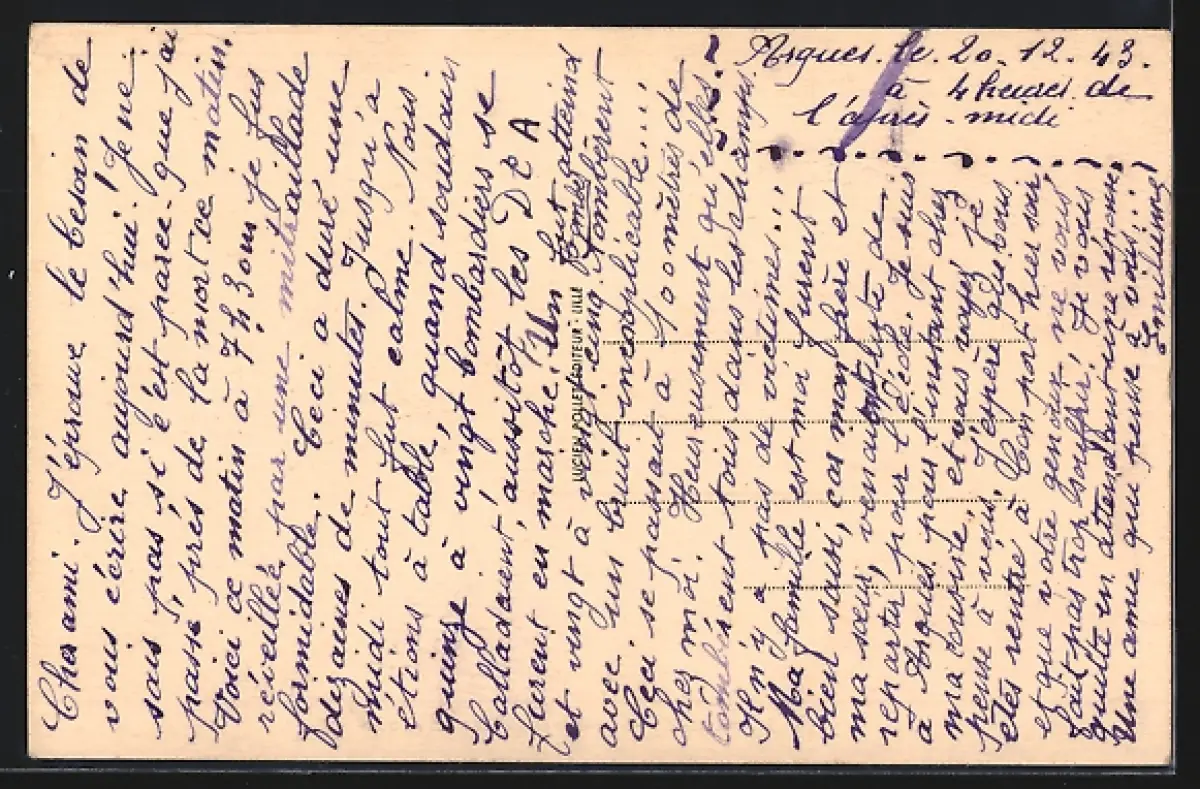 Arques. le 20. 12. 43.
à 4 heures de
l'après-midi
Cher ami. J'éprouve le besoin de
vous écrire aujourd'hui! Je ne
sais pas si c'est parce-que j'ai
passé près de la mort ce matin.
Voici ce matin à 7h30m je fus
réveillée par une mitraillade
formidable. Ceci a duré une
dizaines de minutes. Jusqu'à
midi tout fut calme. Nous
étions à table, quand soudain
quinze à vingt bombardiers se
balladaient, aussitôt les D C A
furent en marche. Un fut atteind
et vingt à vingt cinq bombes tombèrent
avec un bruit inexplicable...!
Ceci se passait à 400 mètres de
chez moi. Heureusement qu'elles
tombèrent tous dans les champs.
Il n'y a pas de victimes..!!
Ma famille est moi furent
bien saisi, car mon frère et
ma sœur, venaient juste de
repartir pour l'école. Je suis
à Arques pour l'instant chez
ma cousine, et vous voyez je
pense à vous. J'espère que vous
êtes rentré à bon port hier soir,
et que votre genoux ne vous
fait pas trop souffrir, Je vous
quitte en attendant une réponse,
Une amie qui pense à vous...
Emilienne
LUCIEN POLLET, EDITEUR - LILLE